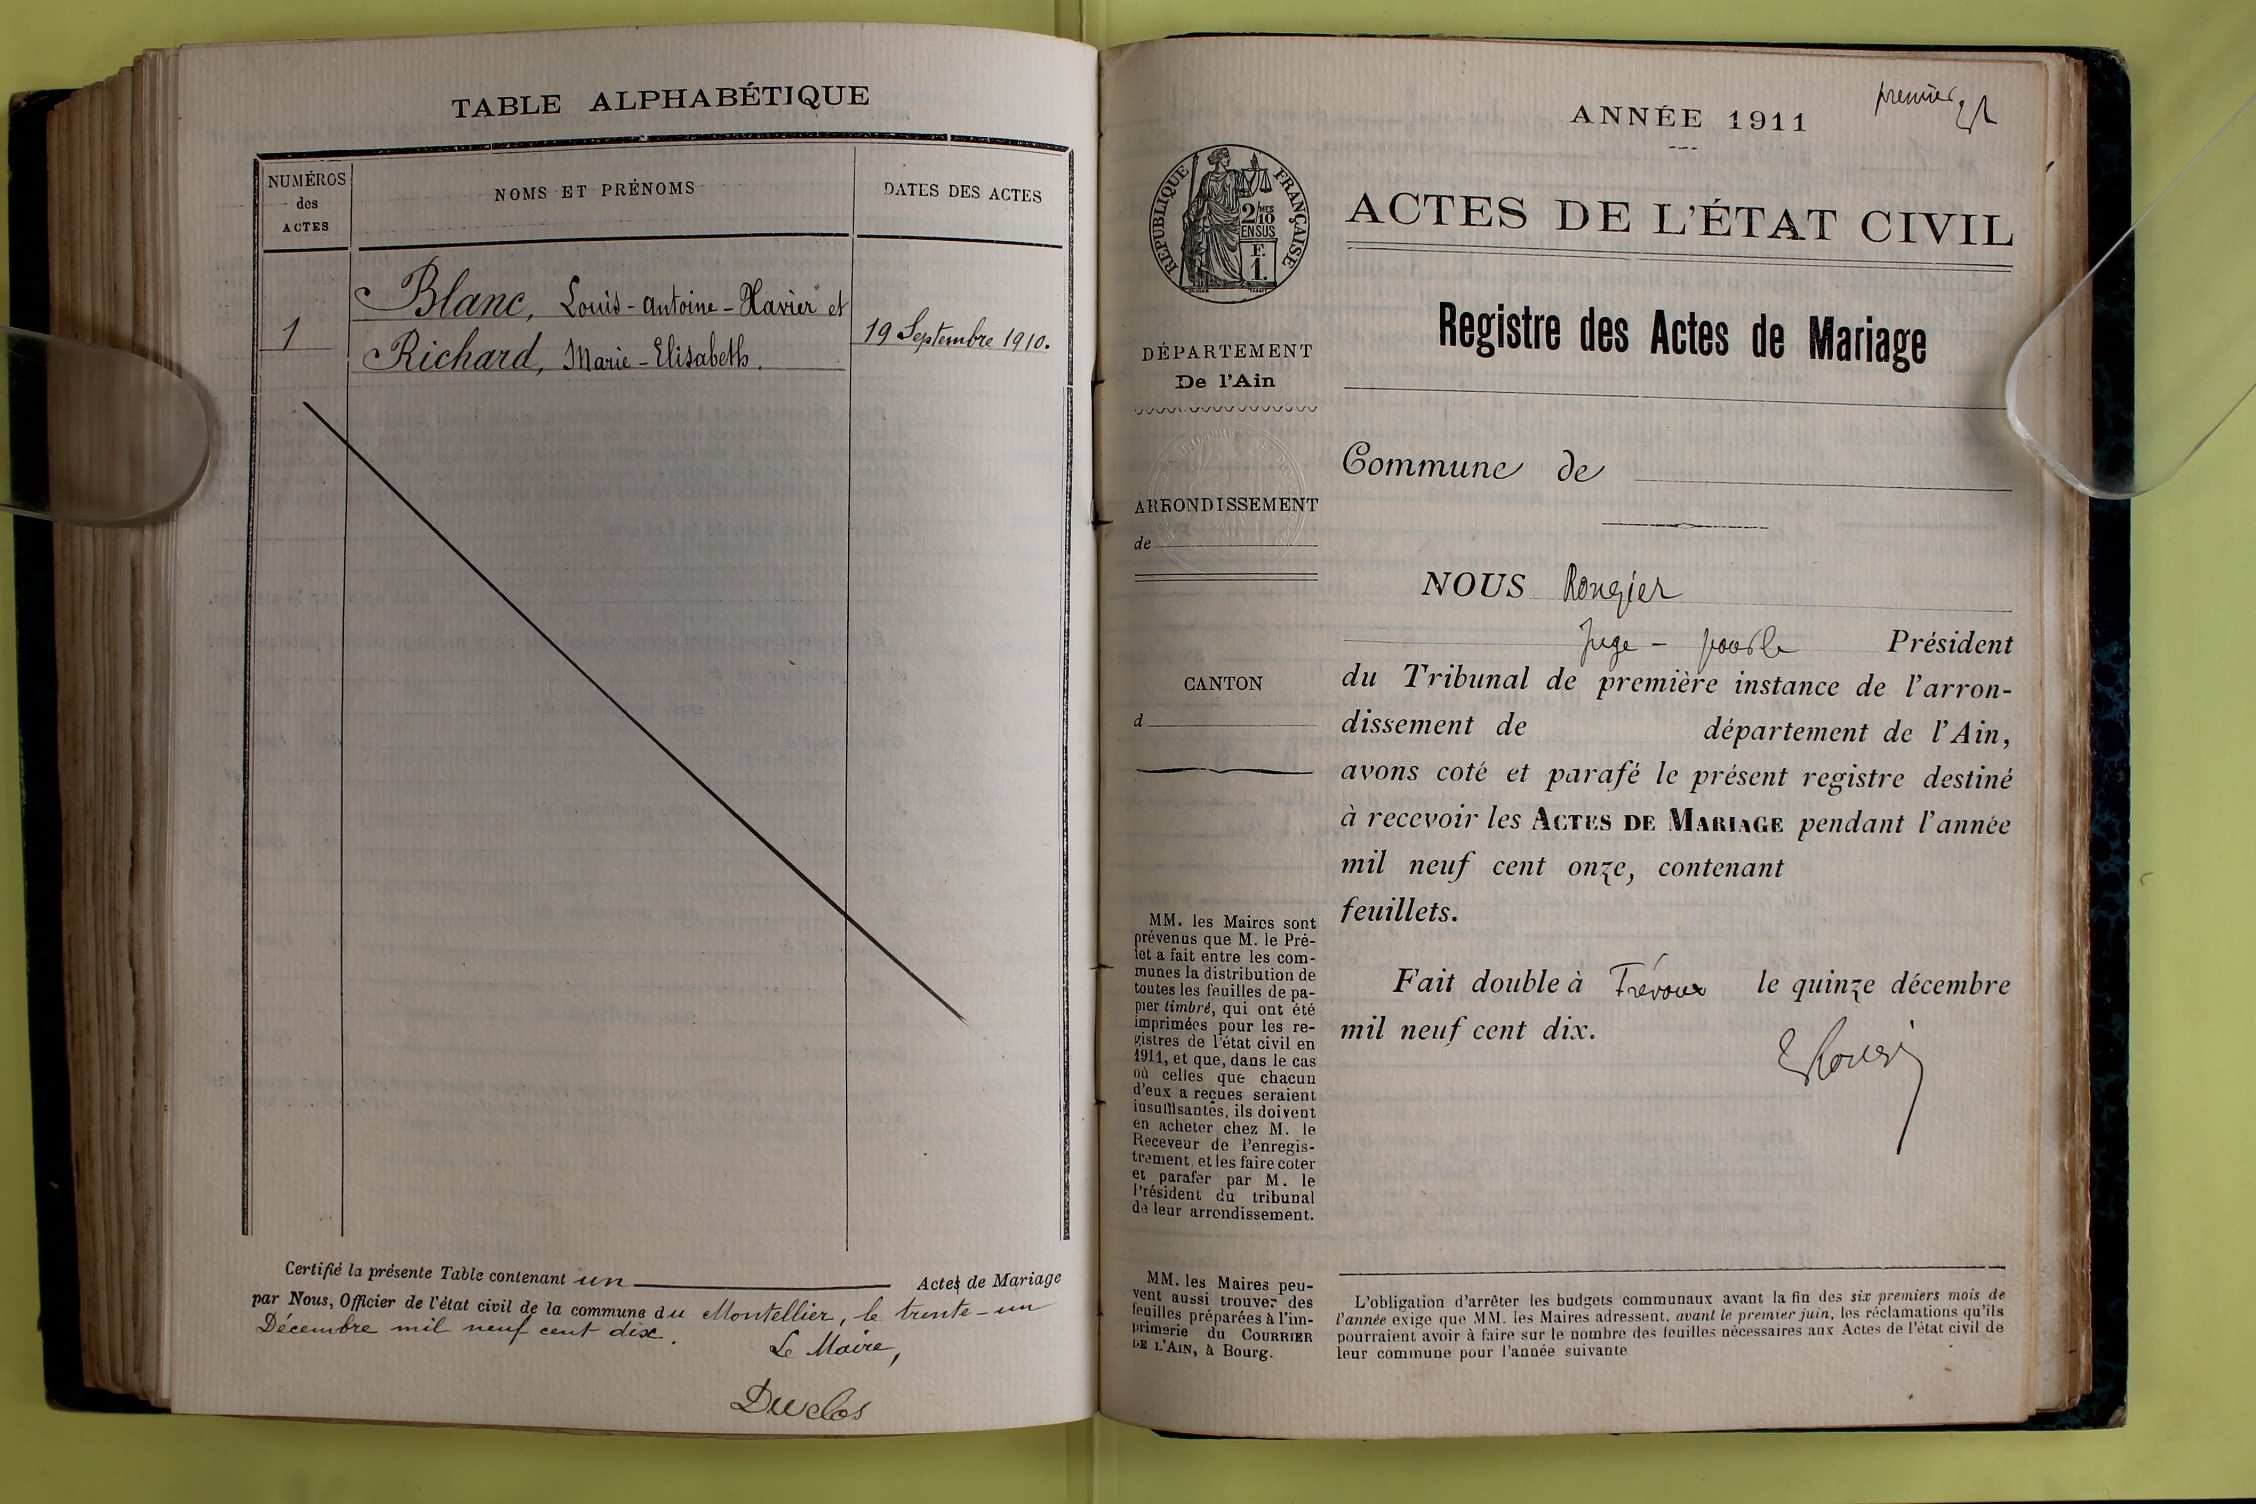 TABLE ALPHABÉTIQUE
NUMÉROS
des
ACTES
NOMS ET PRÉNOMS
DATES DES ACTES
1
Blanc, Louis-Antoine-Xavier et
Richard, Marie-Elisabeth.
19 Septembre 1910.
Certifié la présente Table contenant un Actes de Mariage
par Nous, Officier de l'état civil de la commune du Montellier, le trente-un
Décembre mil neuf cent dix.
Le Maire,
Duclos
premier
ANNÉE 1911
RÉPUBLIQUE FRANÇAISE
2/10MES
EN SUS
F.
1.
ACTES DE L'ÉTAT CIVIL
Registre des Actes de Mariage
DÉPARTEMENT
De l'Ain
ARRONDISSEMENT
de
CANTON
d
MM. les Maires sont
prévenus que M. le Pré-
fet a fait entre les com-
munes la distribution de
toutes les feuilles de pa-
pier timbré, qui ont été
imprimées pour les re-
gistres de l'état civil en
1911, et que, dans le cas
où celles que chacun
d'eux a reçues seraient
insuffisantes, ils doivent
en acheter chez M. le
Receveur de l'enregis-
trement, et les faire coter
et parafer par M. le
Président du tribunal
de leur arrondissement.
MM. les Maires peu-
vent aussi trouver des
feuilles préparées à l'im-
primerie du COURRIER
DE L'AIN, à Bourg.
Commune de
NOUS Rougier
Juge - Président
du Tribunal de première instance de l'arron-
dissement de département de l'Ain,
avons coté et parafé le présent registre destiné
à recevoir les ACTES DE MARIAGE pendant l'année
mil neuf cent onze, contenant
feuillets.
Fait double à Trévoux le quinze décembre
mil neuf cent dix.
L'obligation d'arrêter les budgets communaux avant la fin des six premiers mois de
l'année exige que MM. les Maires adressent, avant le premier juin, les réclamations qu'ils
pourraient avoir à faire sur le nombre des feuilles nécessaires aux Actes de l'état civil de
leur commune pour l'année suivante